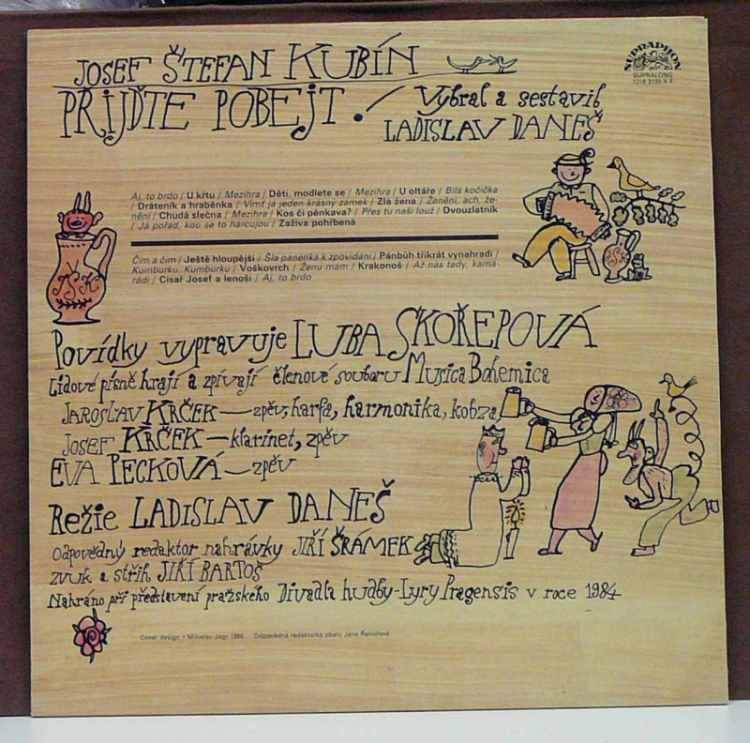 JOSEF ŠTEFAN KUBÍN
PŘIJĎTE POBEJT!
Vybral a sestavil
LADISLAV DANEŠ
SUPRAPHON
Aj, to brdo / U krtu / Mezihra / Děti, modlete se / Mezihra / U oltáře / Bílá kočička
/ Dráteník a hraběnka / Vímť já jeden krásný zámek / Zlá žena / Ženění, ach, že-
nění / Chudá slečna / Mezihra / Kos či pěnkava? / Přes tu naši louž / Dvouzlatník
/ Já pořád, kou se to harcujou / Zaživa pohřbená
Čím a čím / Ještě hloupější / Šla panenka k zpovídání / Pánbůh třikrát vynahradí /
Kumburku, Kumburku / Voškovrch / Ženu mám / Krakonoš / Až nás tady, kama-
rádi / Císař Josef a lenoši / Aj, to brdo
Povídky vypravuje LUBA SKOŘEPOVÁ
Lidové písně hrají a zpívají členové souboru Musica Bohemica
JAROSLAV KRČEK — zpěv, harfa, harmonika, kobza
JOSEF KRČEK — klarinet, zpěv
EVA PECKOVÁ — zpěv
Režie LADISLAV DANEŠ
Odpovědný redaktor nahrávky JIŘÍ ŠRÁMEK
zvuk a střih JIŘÍ BARTOŠ
Nahráno při představení pražského Divadla hudby-Lyry Pragensis v roce 1984
Cover design • Miloslav Jágr 1986 Odpovědná redaktorka obalu Jana